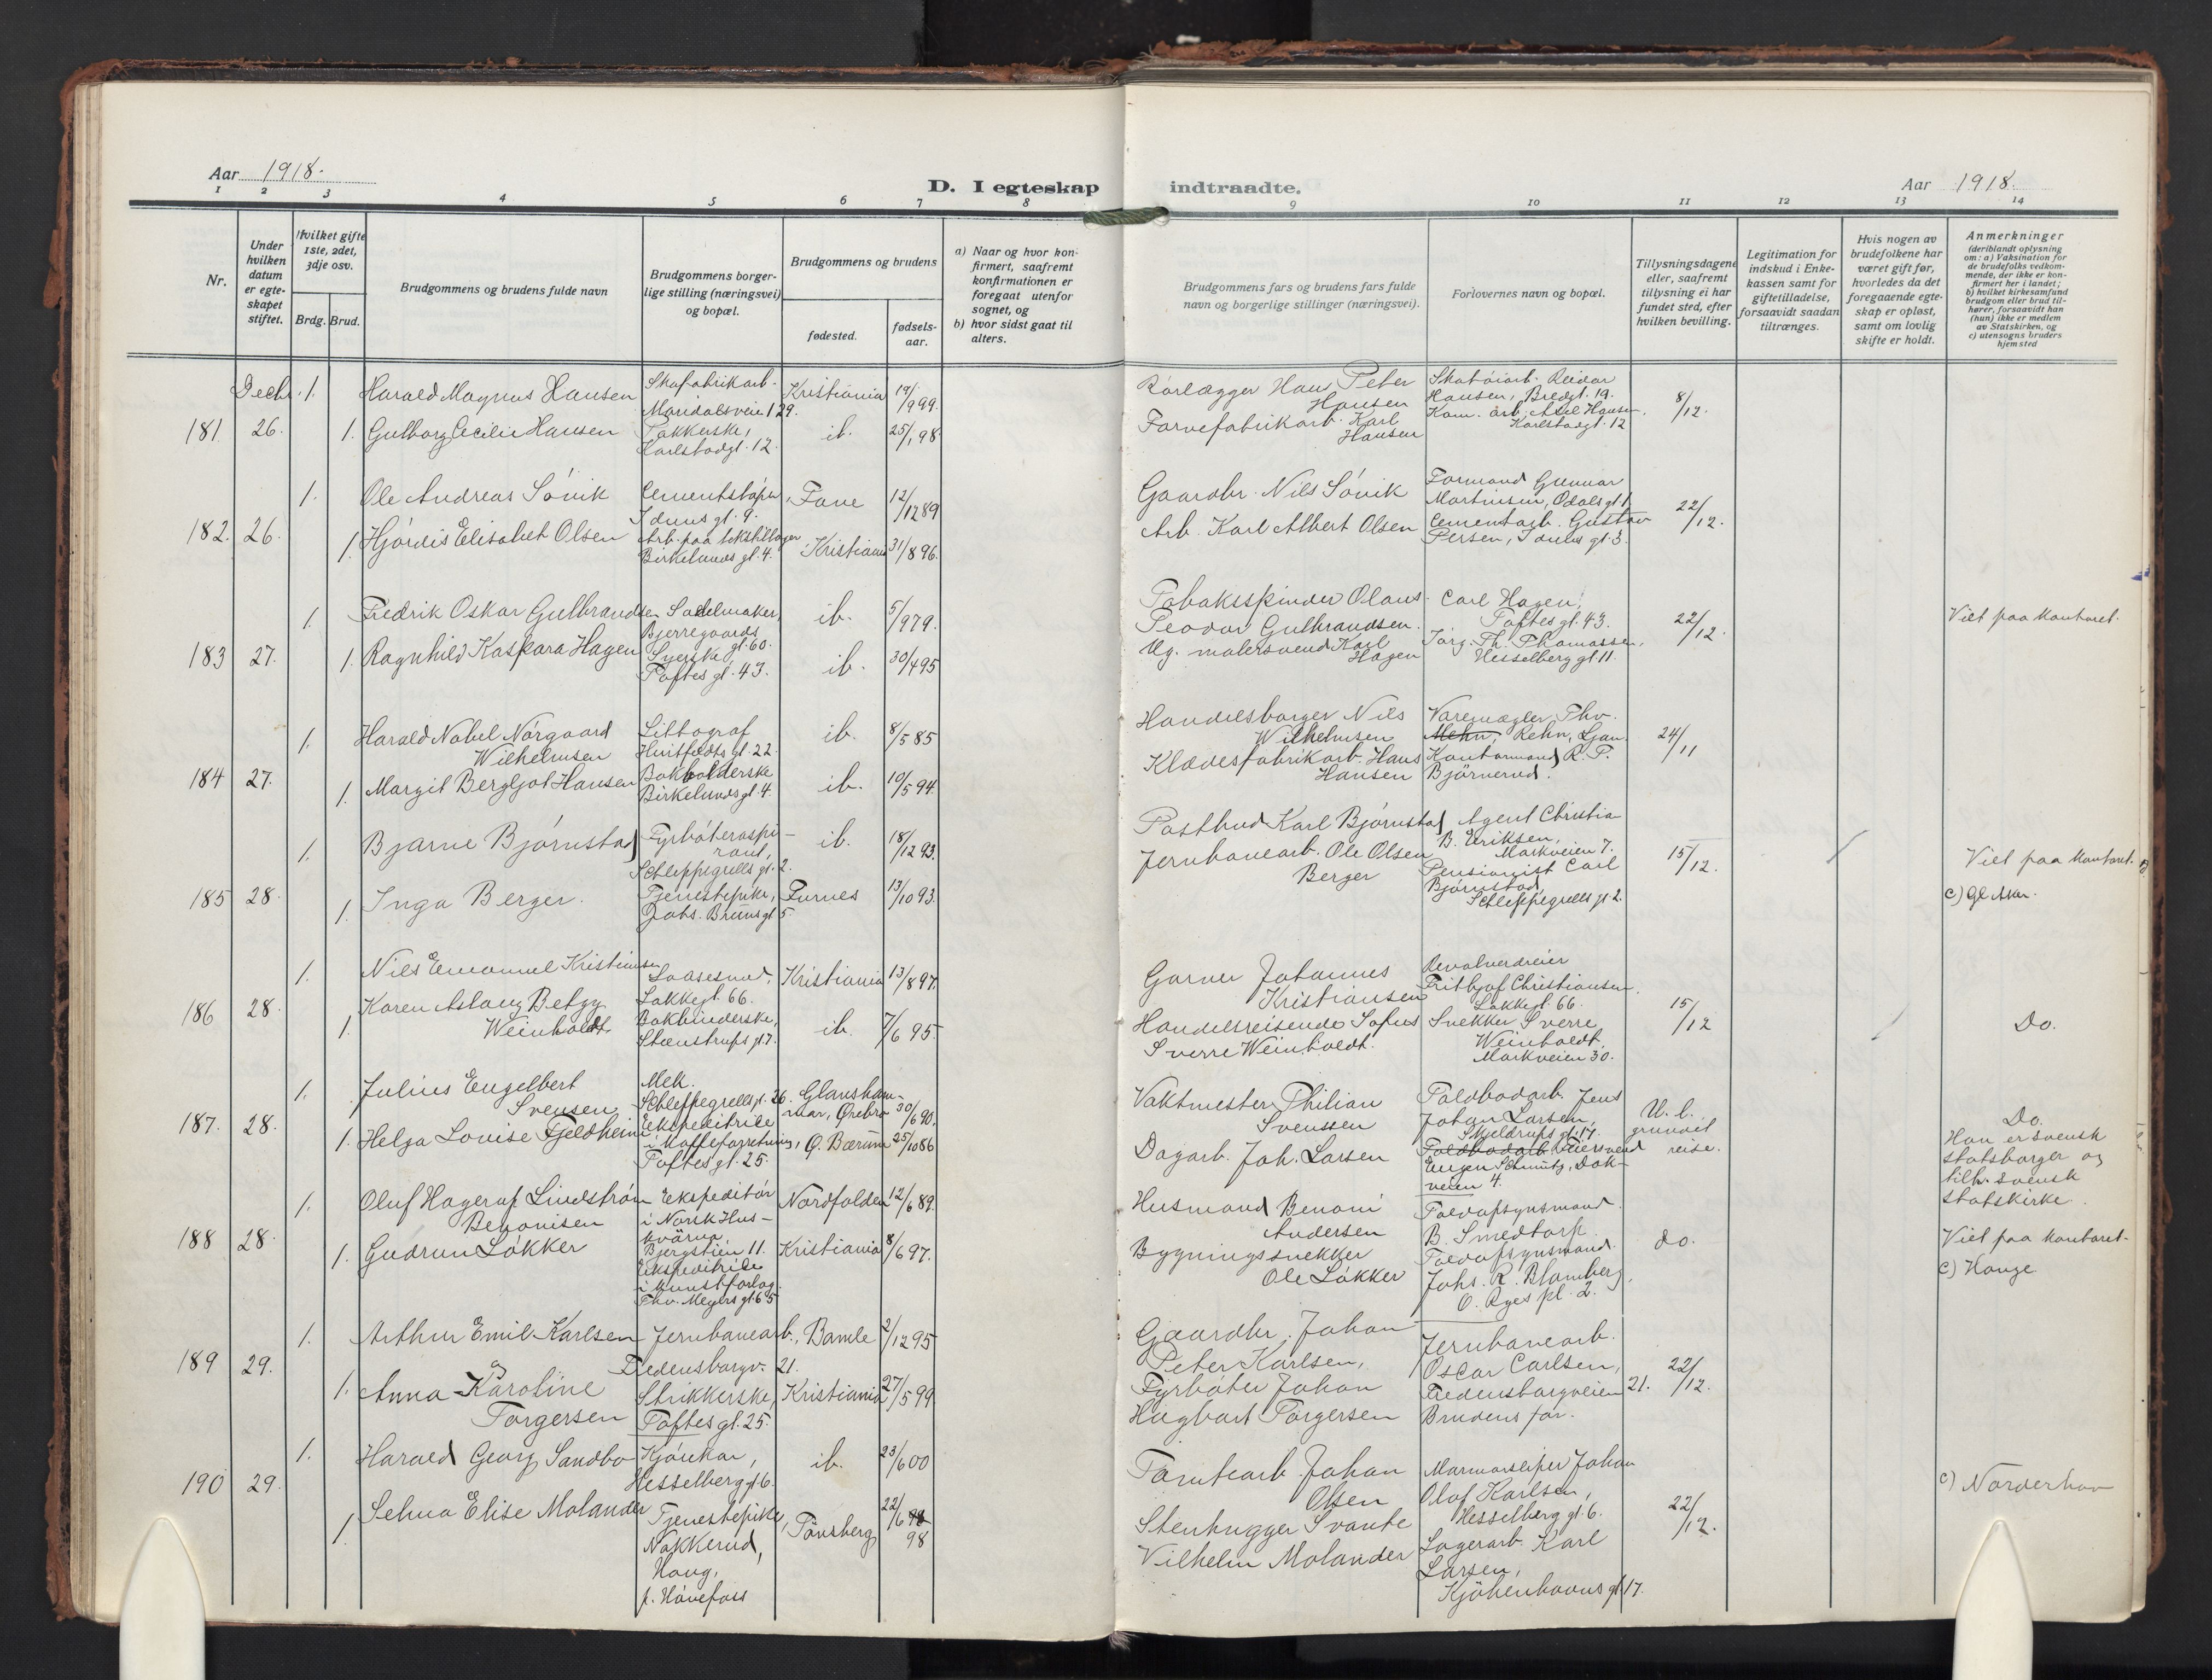 Aar 1918.
D. I egteskap
indtraadte.
Aar 1918.
1 2 3 4 5 6 7 8 9 10 11 12 13 14
Nr.
Under hvilken datum er egteskapet stiftet.
Hvilket gifte 1ste, 2det, 3dje osv.
Brdg. Brud.
Brudgommens og brudens fulde navn
Brudgommens borgerlige stilling (næringsvei) og bopæl.
Brudgommens og brudens
fødested.
fødselsaar.
a) Naar og hvor konfirmert, saafremt konfirmationen er foregaat utenfor sognet, og
b) hvor sidst gaat til alters.
Brudgommens fars og brudens fars fulde navn og borgerlige stillinger (næringsvei).
Forlovernes navn og bopæl.
Tillysningsdagene eller, saafremt tillysning ei har fundet sted, efter hvilken bevilling.
Legitimation for indskud i Enkekassen samt for giftetilladelse, forsaavidt saadan tiltrænges.
Hvis nogen av brudefolkene har været gift før, hvorledes da det foregaaende egteskap er opløst, samt om lovlig skifte er holdt.
Anmerkninger (deriblandt oplysning om: a) Vaksination for de brudefolks vedkommende, der ikke er konfirmert her i landet; b) hvilket kirkesamfund brudgom eller brud tilhører, forsaavidt han (hun) ikke er medlem av Statskirken, og c) utensogns bruders hjemsted
Decbr. 1. Harald Magnus Hansen Skofabrikarb. Maridalsveien 129. Kristiania 19/9 99. Rørlægger Hans Peter Hansen Skotøiarb. Reidar Hansen, Bredgt. 19. 8/12.
181 26. 1. Gulborg Cecilie Hansen Pakkerske, Karlstadgt. 12. ib. 25/1 98. Farvefabrikarb. Karl Hansen Kom. arb. Axel Hansen, Karlstadgt. 12
1. Ole Andreas Søvik Cementstøper, Iduns gt. 9. Fane 12/12 89 Gaardbr. Nils Søvik Formand Gunnar Martinsen, Odals gt. 1 22/12.
182. 26. 1. Hjørdis Elisabet Olsen Arb. paa tekstillager Birkelunds gt. 4. Kristiania 31/8 96. Arb. Karl Albert Olsen Cementarb. Gustav Persen, Iduns gt. 3.
1. Fredrik Oskar Gulbrandsen Sadelmaker, Bjerregaards gt. 60. ib. 5/9 79. Tobaksspinder Olaus Teodor Gulbrandsen. Carl Hagen, Toftes gt. 43. 22/12. Viet paa kontoret.
183 27. 1. Ragnhild Kaspara Hagen Syerske, Toftes gt. 43. ib. 30/4 95 Ug. malersvend Karl Hagen Jørg. Th. Thomassen, Hesselberg gt. 11.
1. Harald Nobel Nørgaard Wilhelmsen Litograf Huitfeldts gt. 22. ib. 8/5 85 Handelsborger Nils Wilhelmsen Varemægler Thv. Mehn, Rehn, Ljan. 24/11
184 27. 1. Margit Bergljot Hansen Bokholderske Birkelunds gt. 4. ib. 10/5 94. Klædesfabrikarb. Hans Hansen Kontormand R. P. Bjørnerud.
1. Bjarne Bjørnstad Fyrbøteraspirant, Schleppegrells gt. 2. ib. 18/12 93. Postbud Karl Bjørnstad Agent Christia B. Eriksen, Markveien 7. 15/12. Viet paa kontoret.
185 28. 1. Inga Berger. Tjenestepike, Johs. Bruns gt. 5 Furnes 13/10 93. Jernbanearb. Ole Olsen Berger Pensionist Carl Bjørnstad, Schleppegrells gt. 2. c) Gl. Aker.
1. Nils Emanuel Kristiansen Laasesmed, Lakkegt. 66. Kristiania 13/8 97. Garver Johannes Kristiansen Revolverdreier Fritbjof Christiansen. Lakkegt. 66. 15/12
186 28. 1. Karen Aslaug Betzy Weinholdt Bokbinderske, Steenstrups gt. 7. ib. 7/6 95. Handelsreisende Sofus Sverre Weinholdt. Snekker Sverre Weinholdt, Markveien 30. Do.
1. Julius Engelbert Svensen Mek. Schleppegrells gt. 26. Glanshammar, Örebro 30/6 90. Vaktmester Philian Svenssen Toldbodarb. Jens Johan Larsen, Skjeldrups gt. 17. U. l. grundet reise. Do.
187. 28. 1. Helga Lovise Fjeldheim Ekspeditrice i kaffeforretning, Toftes gt. 25. Ø. Bærum 25/10 86 Dagarb. Joh. Larsen Toldbodarb. Feiersvend Eugen Schmutz, Dokveien 4. Han er svensk statsborger og tilh. svensk statskirke.
1. Oluf Hagerup Lindstrøm Benonisen Ekspeditør i Norsk Huskvärna Bjergstien 11. Nordfolden 12/6 89. Husmand Benoni Andersen Toldopsynsmand B. Smedtorp. do. Viet paa kontoret.
188 28. 1. Gudrun Løkker Ekspeditrice i kunstforlag. Thv. Meyers gt. 65 Kristiania 8/6 97. Bygningssnekker Ole Løkker Toldopsynsmand Johs. R. Blomberg, O. Ryes pl. 2. c) Hauge
1. Arthur Emil Karlsen Jernbanearb., Fredensborgv. 21. Bamle 2/12 95 Gaardbr. Johan Peter Karlsen, Jernbanearb. Oscar Carlsen, Fredensborgveien 21. 22/12.
189 29. 1. Anna Karoline Torgersen Strikkerske, Toftes gt. 25. Kristiania 27/5 99. Fyrbøter Johan Hagbart Torgersen Brudens far.
1. Harald Georg Sandbo Kjørekar, Hesselberg gt. 6. ib. 23/6 00 Tomtearb. Johan Olsen Marmorsliper Johan Olaf Karlsen, Hesselberg gt. 6. 22/12. c) Norderhov
190 29. 1. Selma Elise Molander Tjenestepike, Nakkerud, Haug, p. Hønefoss Tønsberg 22/6 98 Stenhugger Svante Vilhelm Molander Lagerarb. Karl Larsen, Kjøbenhavns gt. 17.